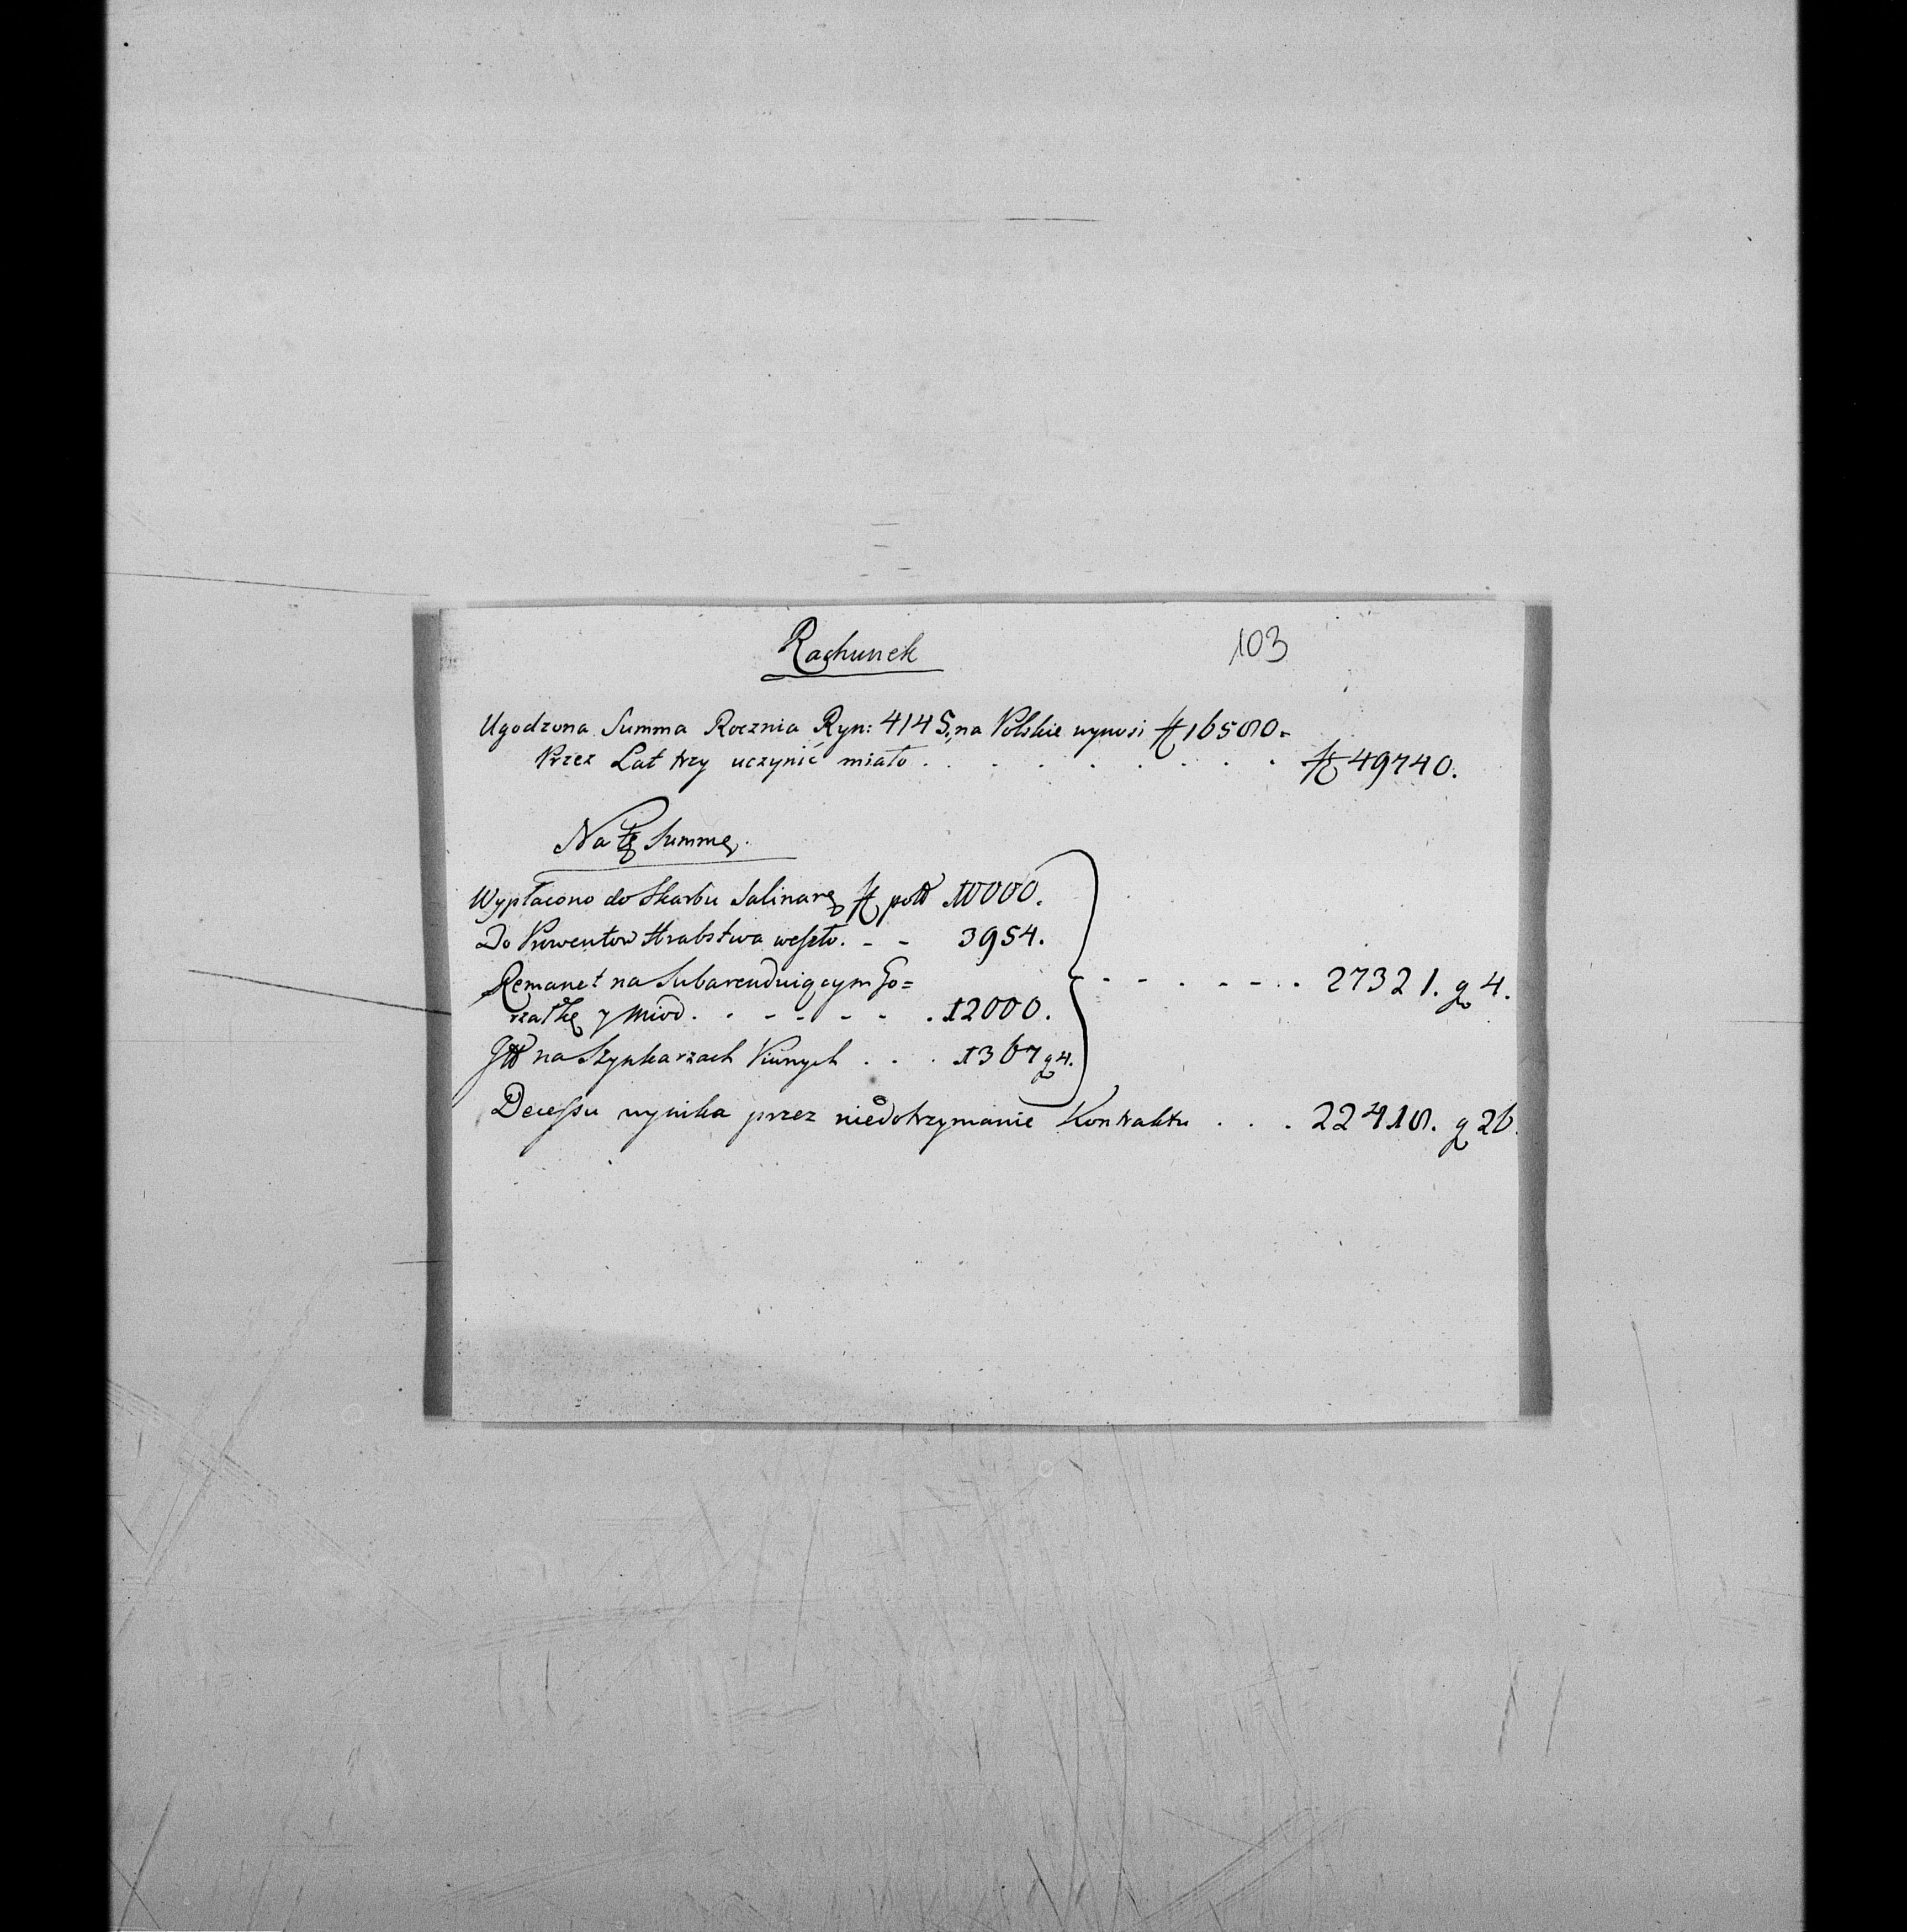 Rachunek
103
Ugodzona Summa Rocznia Ryn: 4145, na Polskie wynosi ff 16580.
Przez Lat trzy uczynić miało . . . . . . . . . ff 49740.
Na tę Summę.
Wypłacono do Skarbu Salinarę ff 10000.
Do Prowentow Hrabstwa weszło. - - 3954.
Remanet na Subarenduiącym Go=
rzałkę y Miod. . - - - - . . 12000. - - . - - . . 27321. g 4.
na Szynkarzach Piwnych . . . 1367 g 4.
Decessu wynika przez niedotrzymanie Kontraktu . . . 22418. g 26.